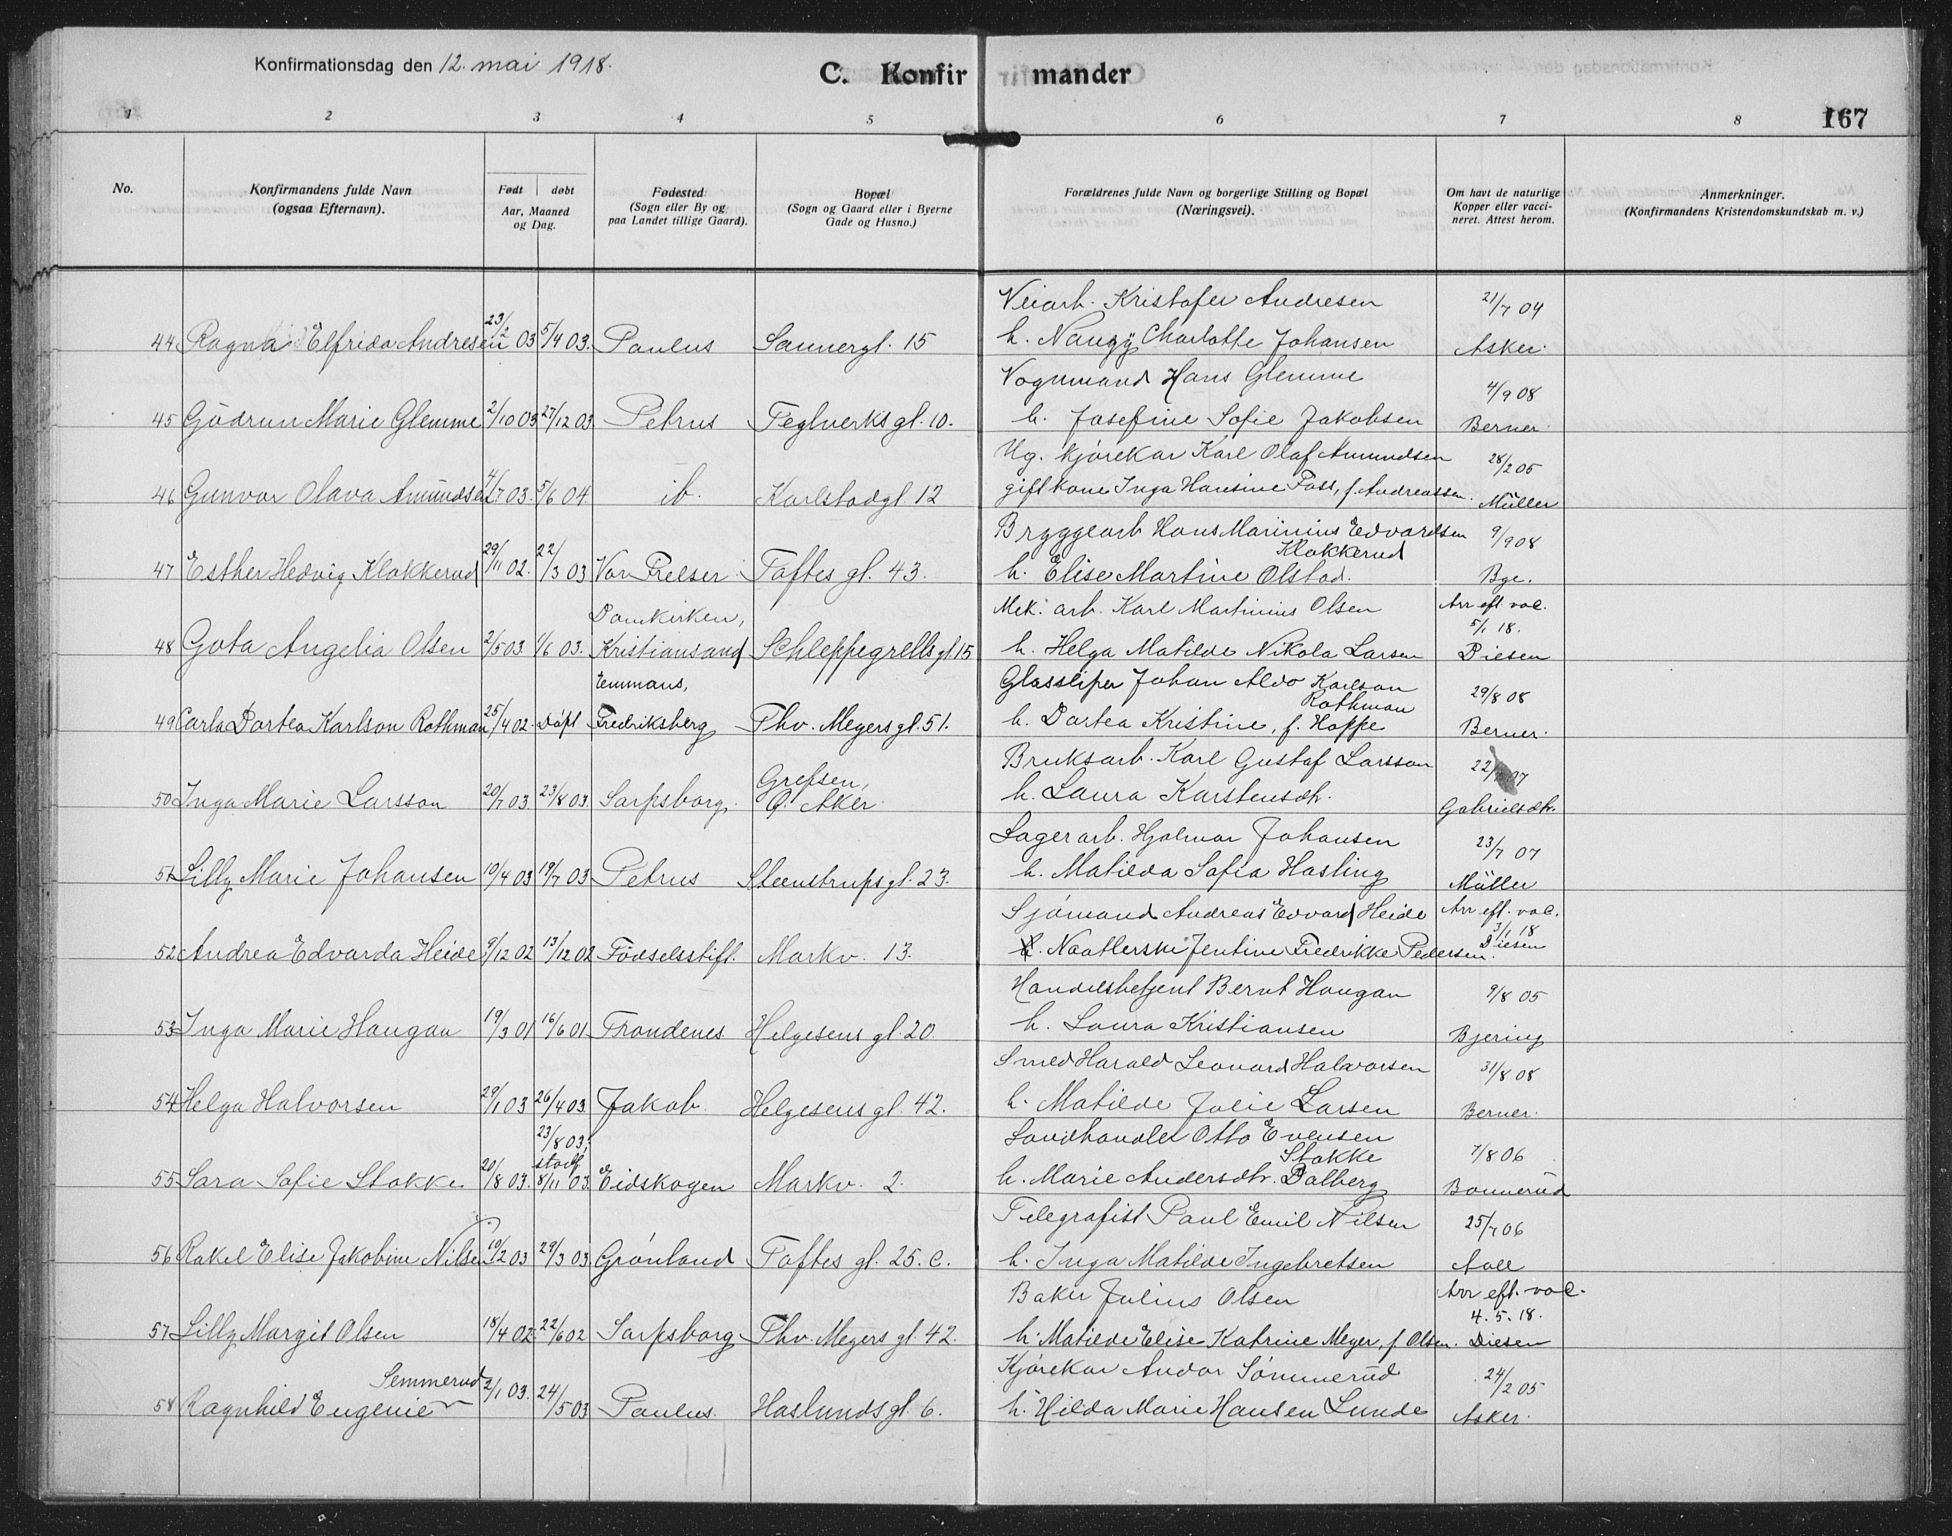 Konfirmationsdag den 12. mai 1918.
C. Konfirmander
167
1 2 3 4 5 6 7 8
No.
Konfirmandens fulde Navn
(ogsaa Efternavn).
Født døbt
Aar, Maaned
og Dag.
Fødested
(Sogn eller By og
paa Landet tillige Gaard).
Bopæl
(Sogn og Gaard eller i Byerne
Gade og Husno.)
Forældrenes fulde Navn og borgerlige Stilling og Bopæl
(Næringsvei).
Om havt de naturlige
Kopper eller vacci-
neret. Attest herom.
Anmerkninger.
(Konfirmandens Kristendomskundskab m. v.)
Veiarb. Kristofer Andresen 21/7 04
44 Ragna Elfrida Andresen 23/2 03 5/4 03. Paulus Sannergt. 15 h. Nangy Charlotte Johansen Asker.
Vognmand Hans Glemme 4/9 08
45 Gudrun Marie Glemme 2/10 03 27/12 03 Petrus Teglverksgt. 10. h. Josefine Sofie Jakobsen Berner.
Ug. kjørekar Karl Olaf Amundsen 28/2 05
46 Gunvor Olava Amundsen 4/7 03. 5/6 04 ib. Karlstadgt 12 gift kone Inga Hansine Foss, f. Andreassen. Müller
Bryggearb Hans Marinius Edvardsen 9/9 08
Klokkerud
47 Esther Hedvig Klokkerud 29/11 02. 22/3 03 Vor Frelser Toftes gt. 43. h. Elise Martine Olstad. Bge.
Domkirken, Mek. arb. Karl Martinius Olsen Arr eft. vac.
5/1 18.
48 Gota Angelia Olsen 2/5 03 1/6 03. Kristiansand Schleppegrellsgt 15 h. Helga Matilde Nikola Larsen Diesen
Emmaus, Glassliper Johan Aldo Karlson 29/8 08
Rothman
49 Carla Dortea Karlson Rothman 25/4 02. Døpt Fredriksberg Thv. Meyersgt. 51. h. Dortea Kristine, f. Hoppe Berner.
Grefsen, Bruksarb. Karl Gustaf Larsson
50 Inga Marie Larsson 20/7 03 23/8 03 Sarpsborg. Ø. Aker. h. Laura Karstensdtr. Gabrielsdtr.
Lagerarb. Hjalmar Johansen 23/7 07
51 Lilly Marie Johansen 19/4 03 19/7 03 Petrus Steenstrupsgt. 23. h. Matilda Sofia Hasling Müller
Sjømand Andreas Edvard Heide Arr eft. vac.
3/1 18
52 Andrea Edvarda Heide 9/12 02 13/12 02 Fødselsstift. Markv. 13. Naatlerske Jentine Fredrikke Pedersen. Diesen
Handelsbetjent Bernt Haugan 9/8 05
53 Inga Marie Haugan 19/3 01 16/6 01 Trondenes Helgesens gt 20 h. Laura Kristiansen Bjering
Smed Harald Leonard Halvorsen 31/8 08
54 Helga Halvorsen 29/1 03 26/4 03. Jakob. Helgesens gt. 42. h. Matilde Julie Larsen Berner.
23/8 03, Landhandler Otto Evensen 7/8 06
stadf. Stokke
55 Sara Sofie Stokke 20/8 03. 8/11 03. Eidskogen Markv. 2. h. Marie Andersdtr. Dalberg Bonnerud
Telegrafist Paul Emil Nilsen 25/7 06
56 Rakel Elise Jakobine Nilsen 10/2 03 29/3 03 Grønland Toftes gt. 25. C. h. Inga Matilde Ingebretsen Aall
Baker Julius Olsen Arr eft. vac.
4. 5. 18.
57 Lilly Margit Olsen 18/4 02 22/6 02 Sarpsborg Thv. Meyers gt. 42. h. Matilde Elise Katrine Meyer, f. Olsen. Diesen
Semmerud Kjørekar Andor Sømmerud 24/2 05
58 Ragnhild Eugenie 2/1 03. 24/5 03 Paulus. Haslunds gt. 6. h. Hilda Marie Hansen Lunde Asker.